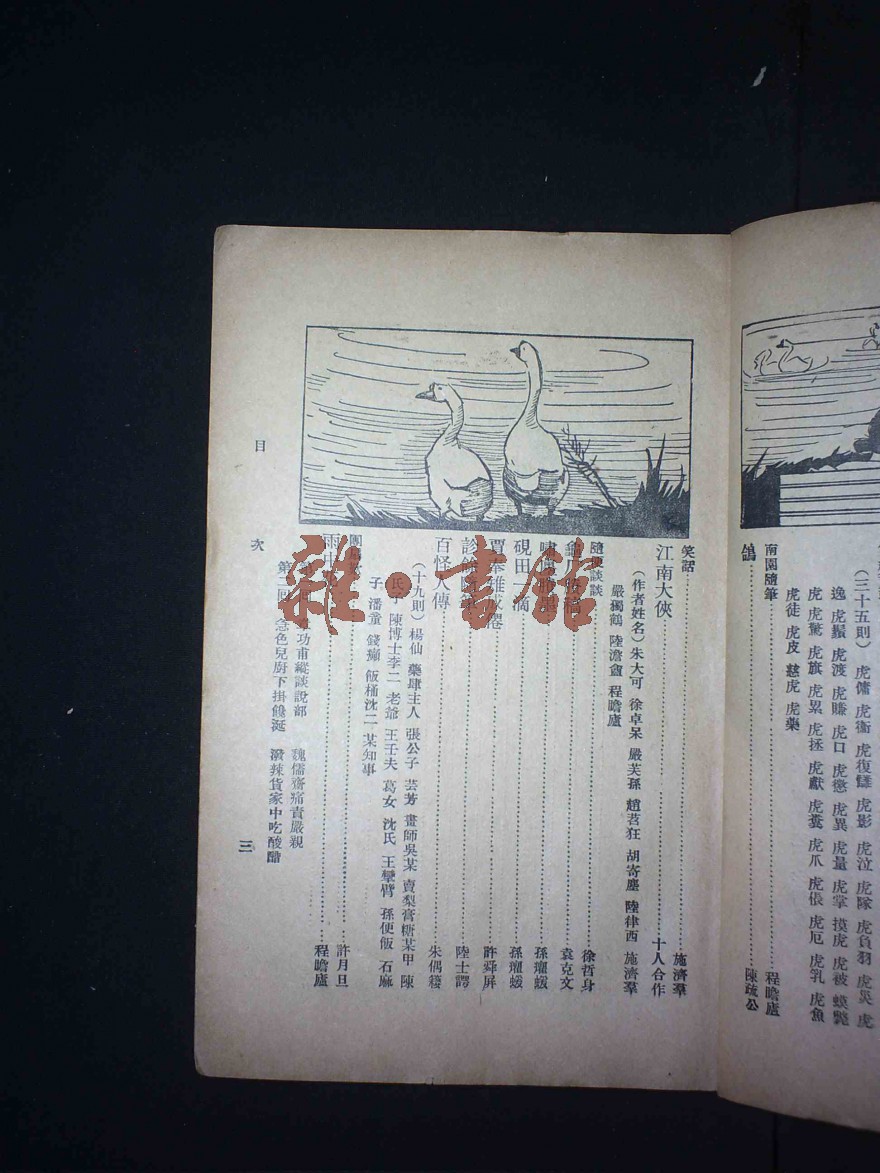 （三十五則） 虎傭 虎衞 虎復讎 虎影 虎泣 虎隊 虎負羽 虎吳 虎
逸 虎鬚 虎渡 虎賺 虎口 虎懲 虎異 虎量 虎掌 摸虎 虎被 蟆斃
虎 虎驚 虎旗 虎累 虎拯 虎獻 虎糞 虎爪 虎倀 虎厄 虎乳 虎魚
虎徒 虎皮 慈虎 虎藥
南園隨筆 程瞻廬
鴿 陳疏公
笑話 施濟羣
江南大俠 十人合作
（作者姓名）朱大可 徐卓呆 嚴芙孫 趙苕狂 胡寄塵 陸律西 施濟羣
嚴獨鶴 陸澹盦 程瞻廬
隨便談談 徐哲身
袁克文
孫癯蝯
硯田一滴 孫癯蝯
賈奉雉 許舜屏
陸士諤
百怪人傳 朱偶籛
（十九則）楊仙 藥肆主人 張公子 芸芳 畫師吳某 賣梨膏糖某甲 陳
氏子 陳博士李二 老爺 王壬夫 葛女 沈氏 王攣臂 孫便飯 石麻
子 潘董 錢癩 飯桶沈二 某知事
許月旦
程瞻廬
功甫縱談說部 魏儒齋痛責嚴親
第二回 急色兒廚下掛饞涎 潑辣貨家中吃酸醋
目 次
三
雜·書館